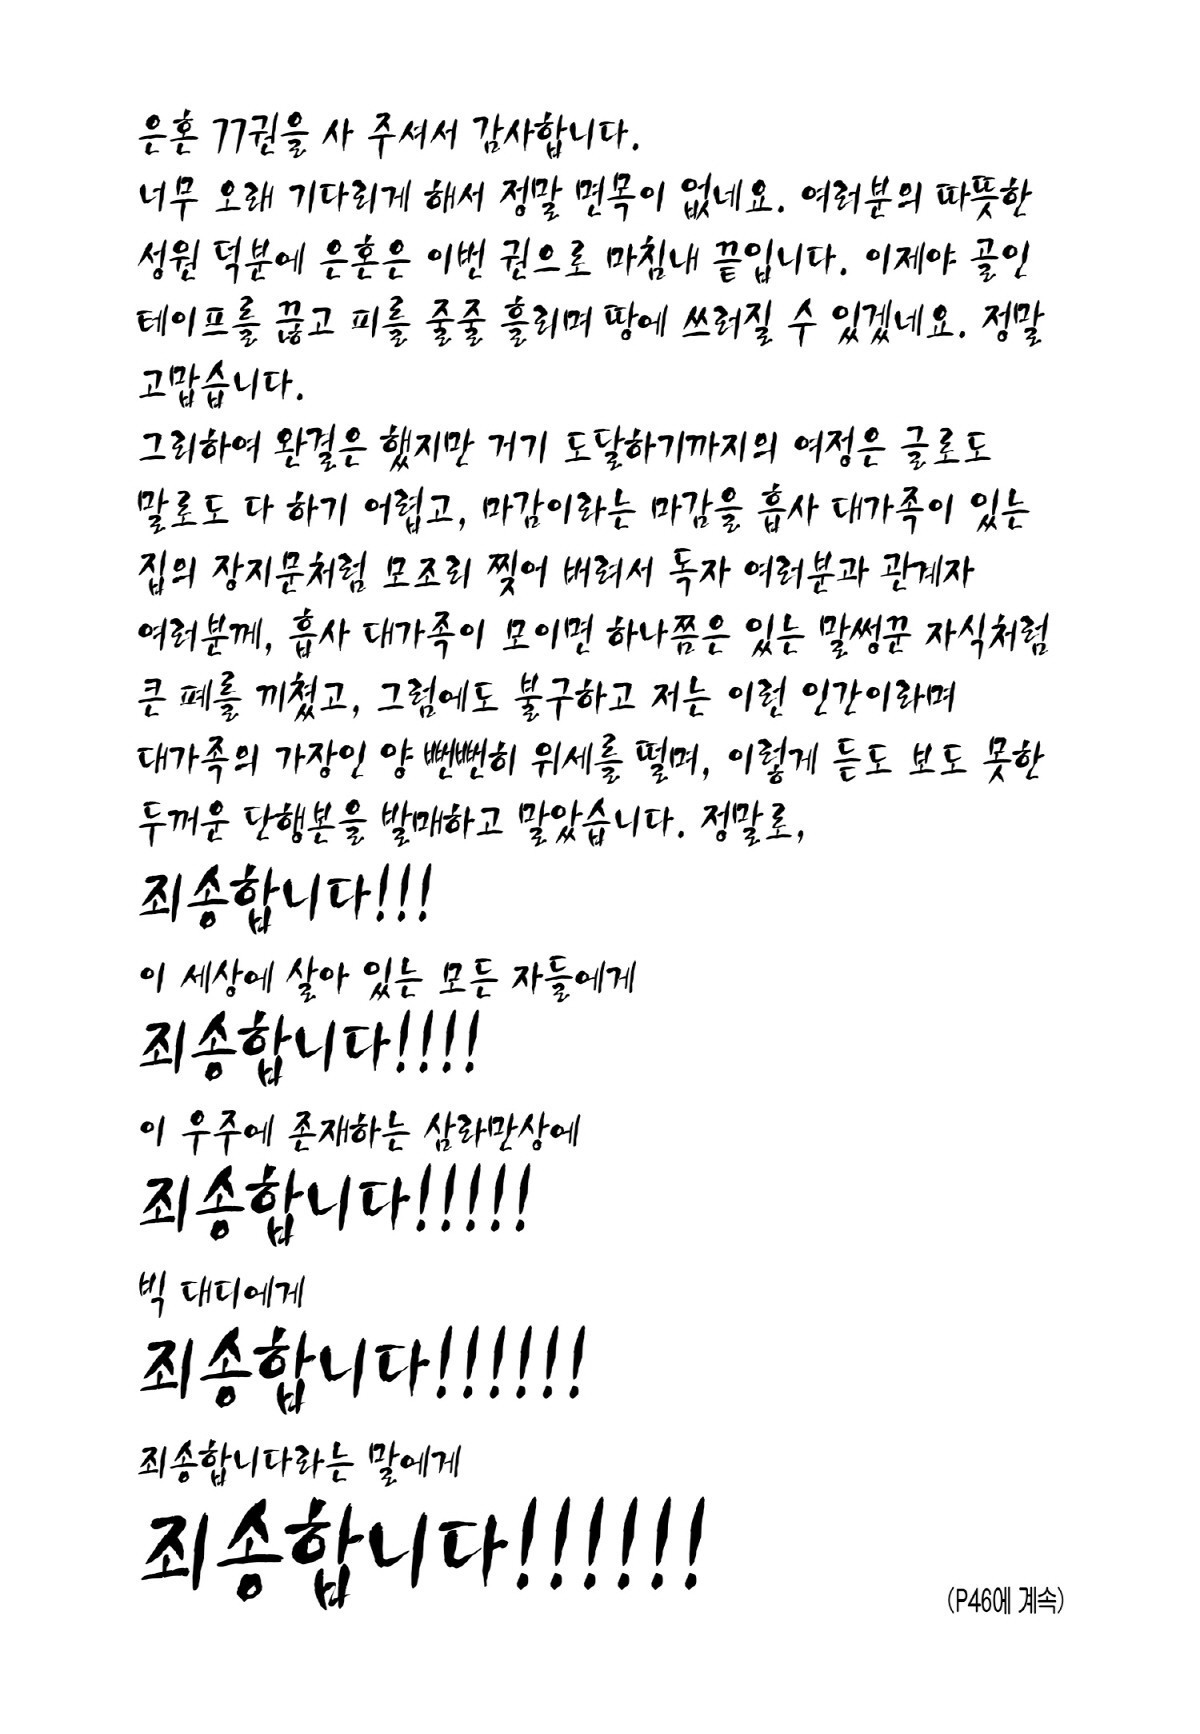 은혼 77권을 사 주셔서 감사합니다.
너무 오래 기다리게 해서 정말 면목이 없네요. 여러분의 따뜻한
성원 덕분에 은혼은 이번 권으로 마침내 끝입니다. 이제야 골인
테이프를 끊고 피를 줄줄 흘리며 땅에 쓰러질 수 있겠네요. 정말
고맙습니다.
그리하여 완결은 했지만 거기 도달하기까지의 여정은 글로도
말로도 다 하기 어렵고, 마감이라는 마감을 흡사 대가족이 있는
집의 장지문처럼 모조리 찢어 버려서 독자 여러분과 관계자
여러분께, 흡사 대가족이 모이면 하나쯤은 있는 말썽꾼 자식처럼
큰 폐를 끼쳤고, 그럼에도 불구하고 저는 이런 인간이라며
대가족의 가장인 양 뻔뻔히 위세를 떨며, 이렇게 듣도 보도 못한
두꺼운 단행본을 발매하고 말았습니다. 정말로,
죄송합니다!!!
이 세상에 살아 있는 모든 자들에게
죄송합니다!!!!
이 우주에 존재하는 삼라만상에
죄송합니다!!!!!
빅 대디에게
죄송합니다!!!!!!
죄송합니다라는 말에게
죄송합니다!!!!!!
(P46에 계속)